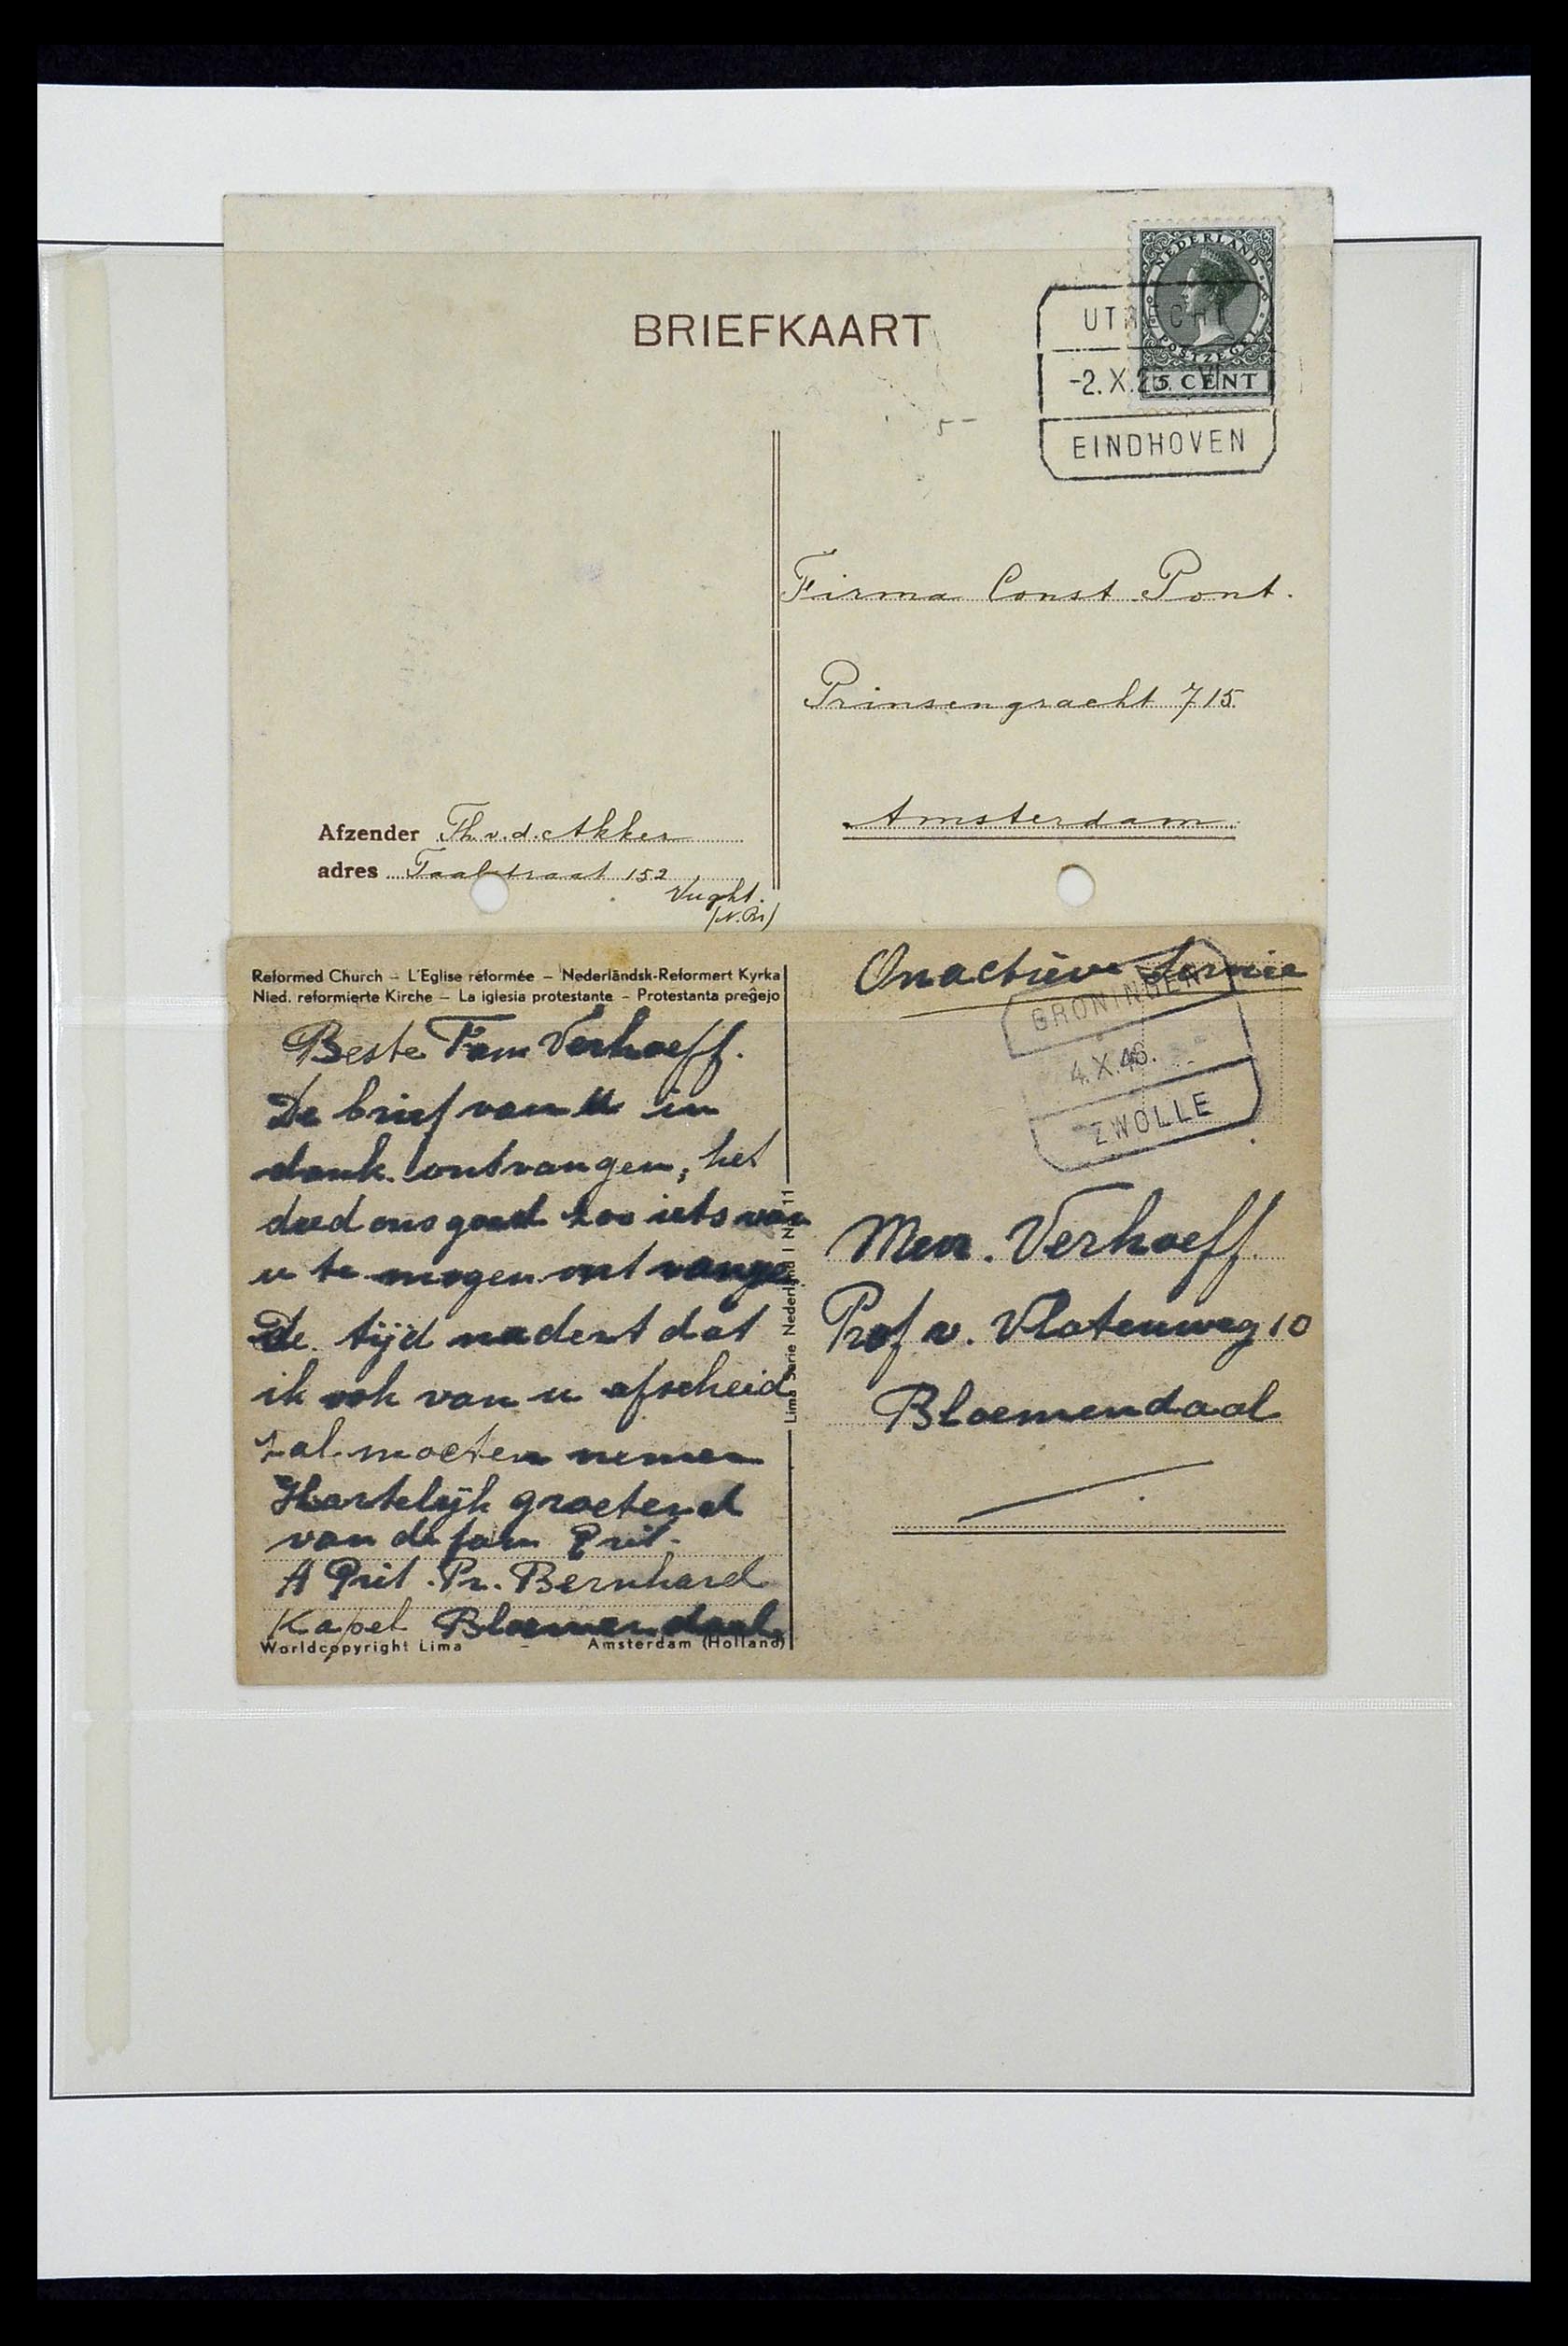 BRIEFKAART
NEDERLAND
POSTZEGEL
5 CENT
UTRECHT
-2.X.2 VI
EINDHOVEN
Firma Const Pont.
Prinsengracht 715
Amsterdam
Afzender Th. v. d. Akker
adres Taalstraat 152
Vught.
(N.Br)
Reformed Church – L'Eglise réformée – Nederländsk-Reformert Kyrka
Nied. reformierte Kirche – La iglesia protestante – Protestanta preĝejo
Beste Fam Verhoeff.
De brief van U in
dank ontvangen, het
deed ons goed zoo iets van
u te mogen ontvange
De tijd nadert dat
ik ook van u afscheid
zal moeten nemen
Hartelijk groetend
van de fam Prit.
A Prit. Pr. Bernhard
Kapel Bloemendaal
Worldcopyright Lima – Amsterdam (Holland)
Lima Serie Nederland I N 11
Onactieve Servie
GRONINGEN
4.X.46.
ZWOLLE
Men. Verhoeff
Prof v. Vlotenweg 10
Bloemendaal